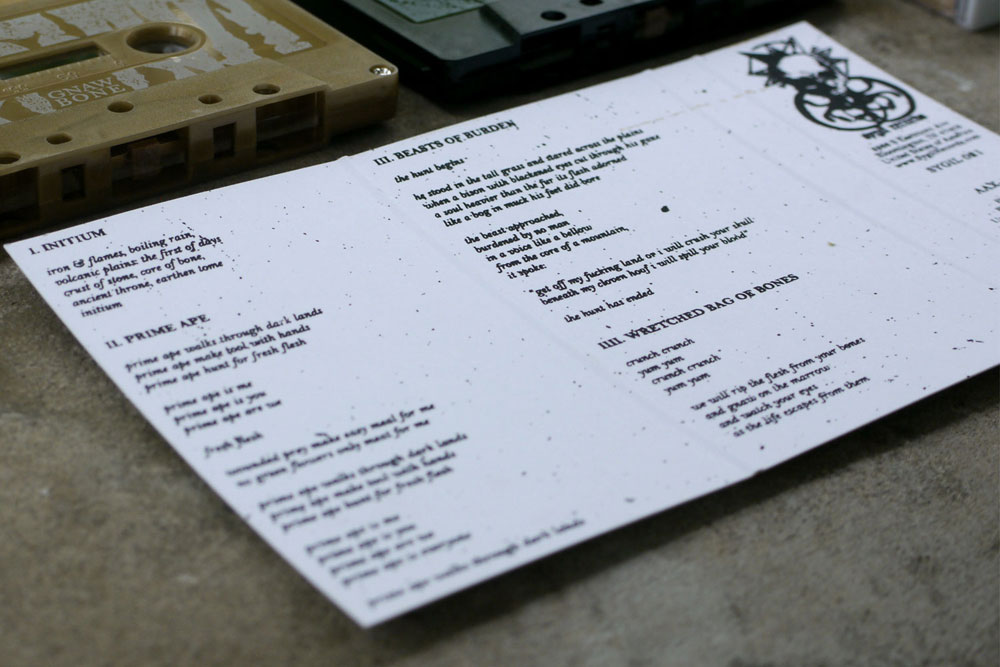 GNAW
BONE
I. INITIUM
iron & flames, boiling rain,
volcanic plains: the first of days
crust of stone, core of bone,
ancient throne, earthen tome
initium
II. PRIME APE
prime ape walks through dark lands
prime ape make tool with hands
prime ape hunt for fresh flesh
prime ape is me
prime ape is you
prime ape are we
fresh flesh
wounded prey make easy meal for me
no grass flowers only meat for me
prime ape walks through dark lands
prime ape make tool with hands
prime ape hunt for fresh flesh
prime ape is me
prime ape is you
prime ape are we
prime ape is everyone
prime ape walks through dark lands
III. BEASTS OF BURDEN
the hunt begins
he stood in the tall grass and stared across the plains
when a bison with blackened eyes cut through his gaze
a soul heavier than the fur its flesh adorned
like a bog in muck his feet did bore
the beast approached,
burdened by no man
in a voice like a bellow
from the core of a mountain,
it spoke:
"get off my fucking land or i will crush your skull
beneath my cloven hoof i will spill your blood"
the hunt has ended
IIII. WRETCHED BAG OF BONES
crunch crunch
yum yum
crunch crunch
yum yum
we will rip the flesh from your bones
and gnaw on the marrow
and watch your eyes
as the life escapes from them
United States of America
SYGIL-081